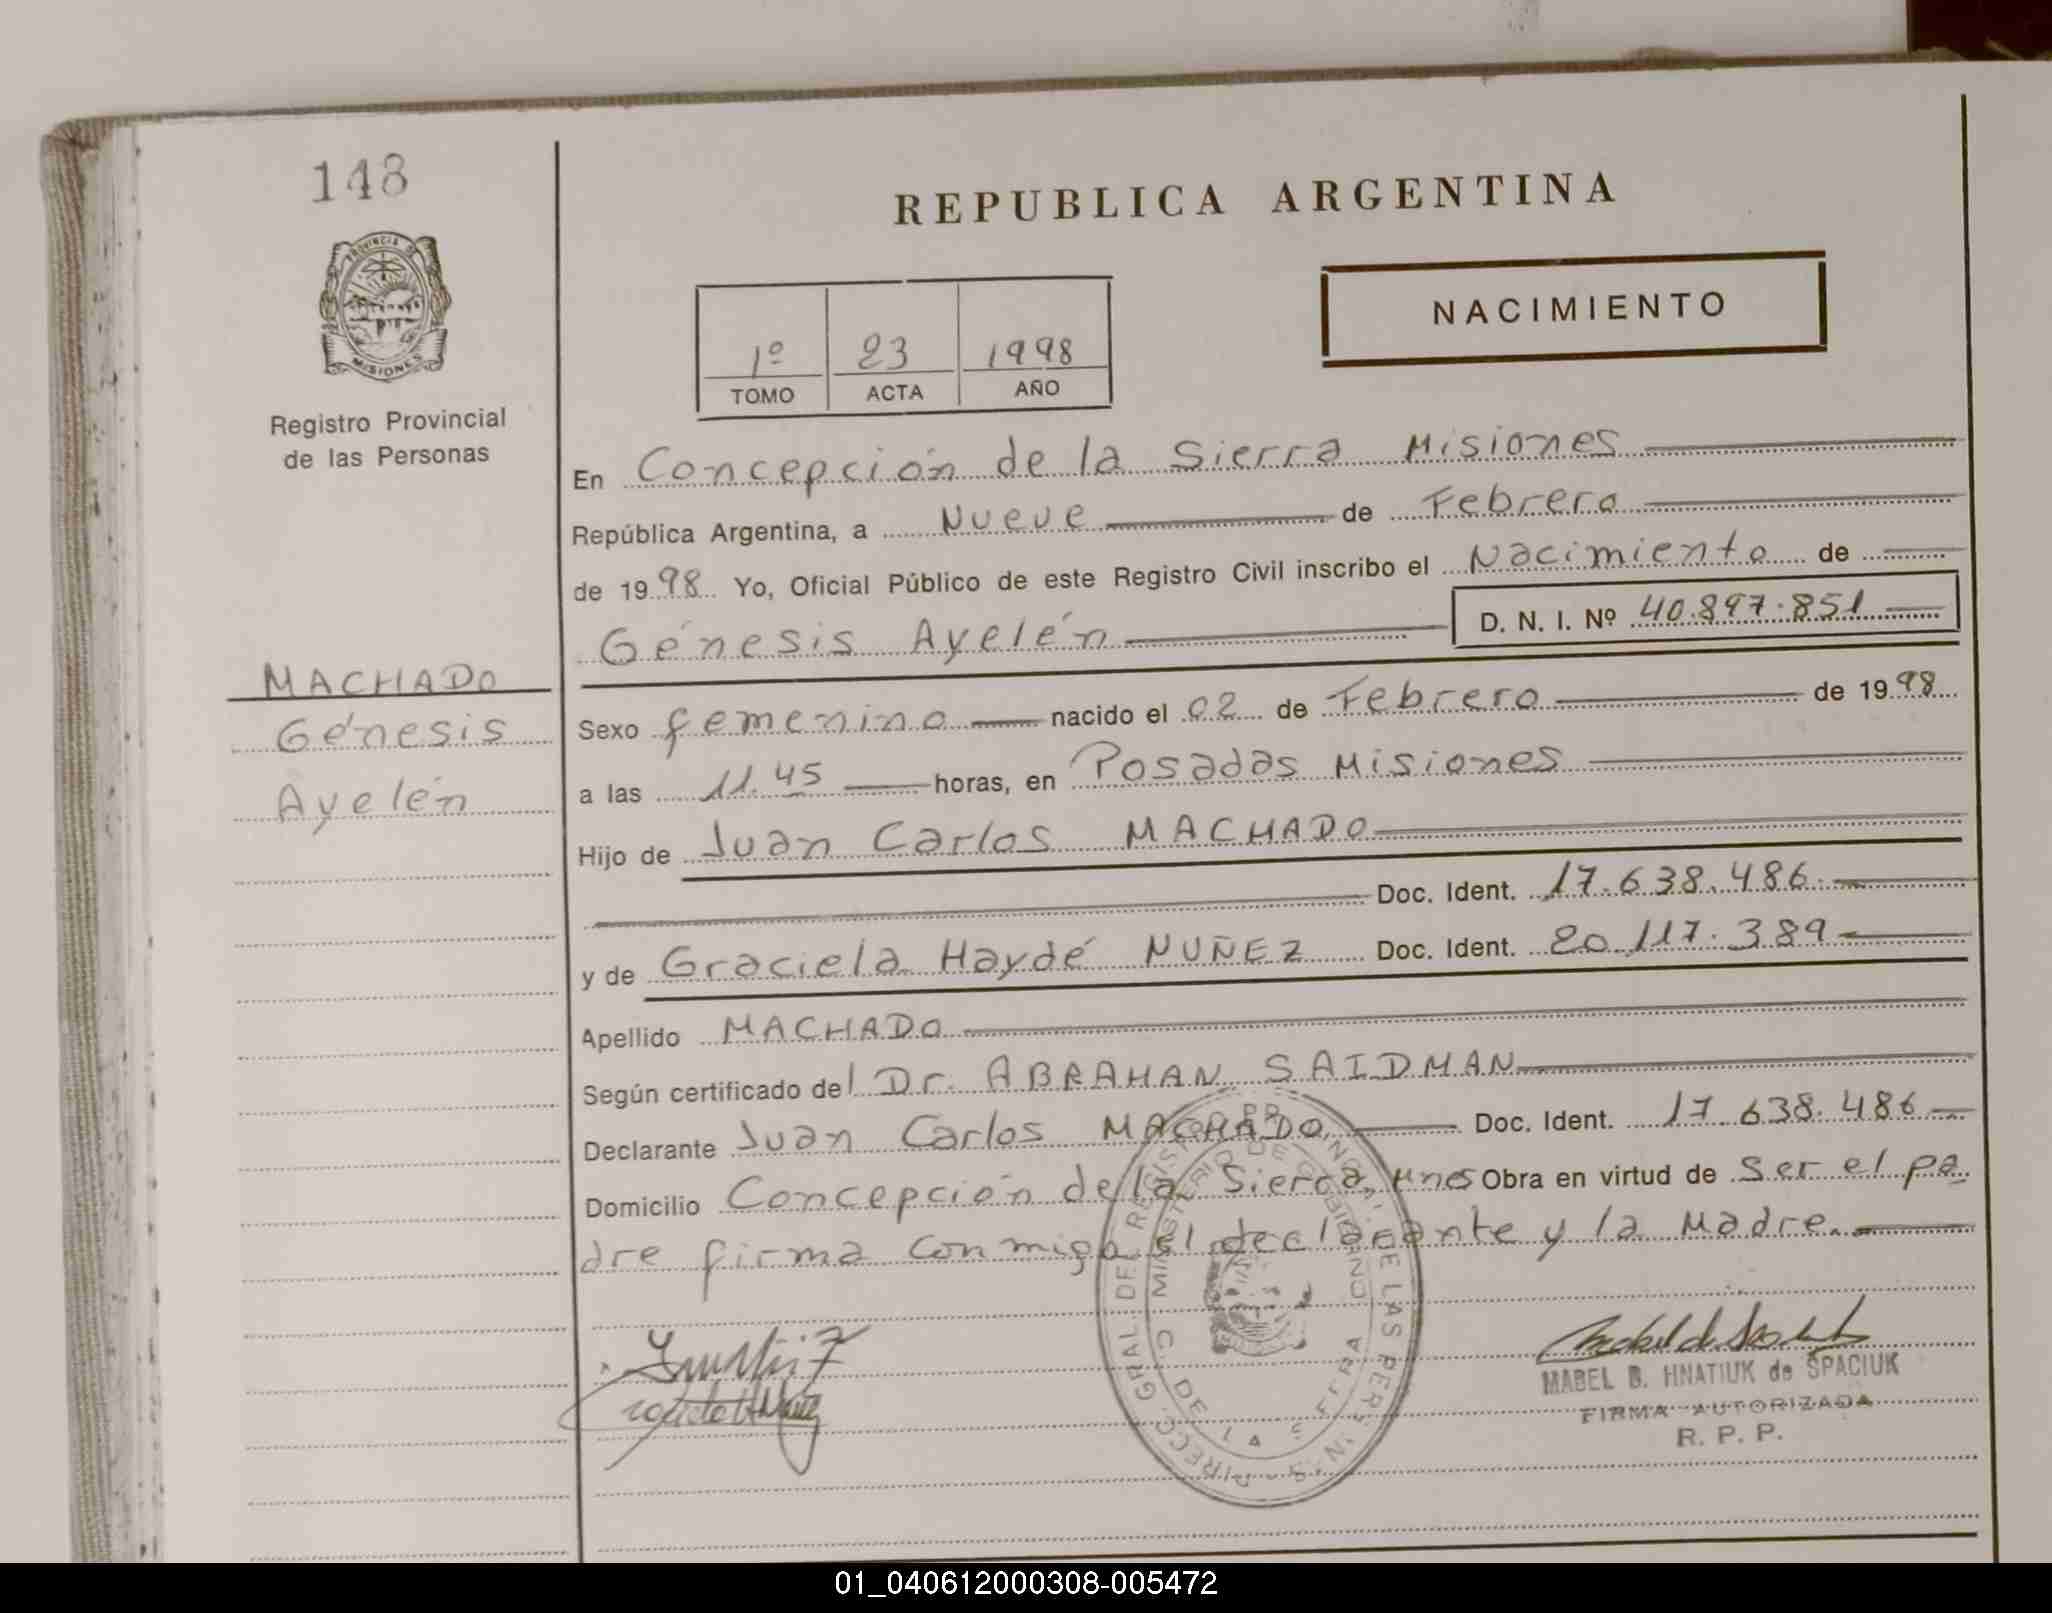 148
REPUBLICA ARGENTINA
PROVINCIA DE
MISIONES
NACIMIENTO
1º 23 1998
TOMO ACTA AÑO
Registro Provincial
de las Personas
En Concepción de la Sierra Misiones
República Argentina, a Nueve de Febrero
de 1998 Yo, Oficial Público de este Registro Civil inscribo el Nacimiento de
Génesis Ayelén D. N. I. Nº 40.897.851
MACHADO
Génesis
Ayelén
Sexo femenino nacido el 02 de Febrero de 1998
a las 11.45 horas, en Posadas Misiones
Hijo de Juan Carlos MACHADO
Doc. Ident. 17.638.486
y de Graciela Haydé NUÑEZ Doc. Ident. 20.117.389
Apellido MACHADO
Según certificado del Dr. ABRAHAN SAIDMAN
Declarante Juan Carlos MACHADO Doc. Ident. 17.638.486
Domicilio Concepción de la Sierra, Mnes Obra en virtud de ser el pa
dre firma conmigo el declarante y la Madre.
MABEL B. HNATIUK de SPACIUK
FIRMA AUTORIZADA
R. P. P.
01_040612000308-005472